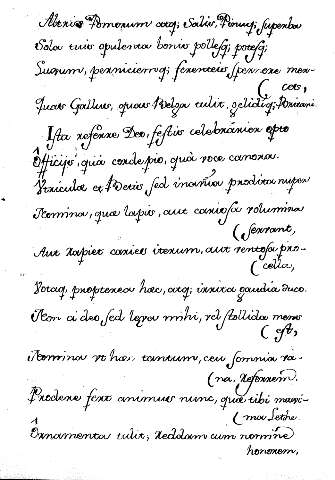 Altrix Pomorum atq; Salis, Pinuq; superba
Sola tuis opulenta bonis pollesq; potesq;
Luorum, perniciemq; ferenteis spernere mer-
(ces,
Quas Gallus, quas Belga tulit, gelidiq; Britani.
Ista referre Deo, festis celebrarier opto
Officijs, quà corde pio, quà voce canora.
et Betis, sed inania prodita nuper
Nomina, quae lapis, aut cariosa volumina
(servant,
Aut rapiet caries iterum, aut ventosa pro-
(cella,
Votaq; propterea haec, atq; irrita gaudia duco.
Non a deo, sed laeva mihi, vel stollida mens
(est,
Nomina vt haec tantum, ceu somnia va-
(na. Referrem.
Prodere fert animus nunc, quae tibi maxi-
(ma Lethe
Ornamenta tulit; Reddam cum nomine
honorem,